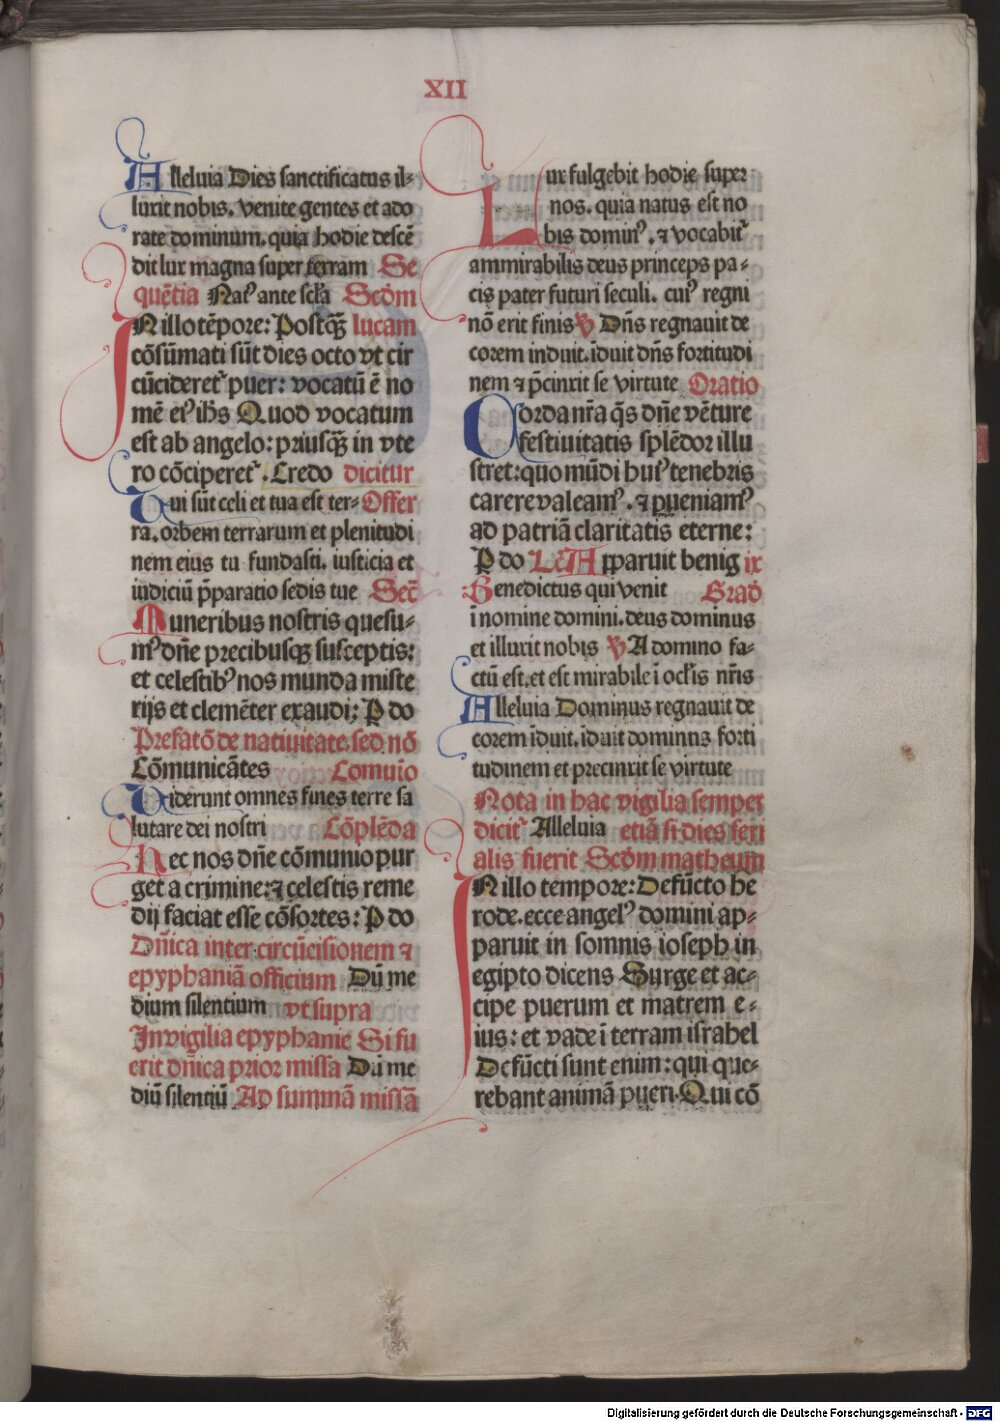 XII
Alleluia Dies sanctificatus il-
luxit nobis. venite gentes et ado
rate dominum. quia hodie descē
dit lux magna super terram Se
quētia Natꝰ ante scła Scđm
IN illo tēpore: Postqꝫ lucam
cōsūmati sūt dies octo vt cir
cūcideretᷣ puer: vocatū ē no
mē eiꝰ ihs̄ Quod vocatum
est ab angelo: priusqꝫ in vte
ro cōciperetᷣ. Credo dicitur
Tui sūt celi et tua est ter- Offer
ra. orbem terrarum et plenitudi
nem eius tu fundasti. iusticia et
iudiciū p̄paratio sedis tue Secͤ
Muneribus nostris quesu-
mꝰ dn̄e precibusqꝫ susceptis:
et celestibꝰ nos munda miste
rijs et clemēter exaudi: P do
Prefatō de natiuitate. sed nō
Cōmunicātes Comuīo
Viderunt omnes fines terre sa
lutare dei nostri Cōplēda
Hec nos dn̄e cōmunio pur
get a crimine: ⁊ celestis reme
dij faciat esse cōsortes: P do
Dn̄ica inter circūcisionem ⁊
epyphaniā officium Dū me
dium silentium vt supra
In vigilia epyphanie Si fu
erit dn̄ica prior missa Dū me
diū silentiū Ad summā missā
Lux fulgebit hodie super
nos. quia natus est no
bis dominꝰ. ⁊ vocabitᷣ
ammirabilis deus princeps pa-
cis pater futuri seculi. cuiꝰ regni
nō erit finis ℣ Dn̄s regnauit de
corem induit. īduit dn̄s fortitudi
nem ⁊ p̄cinxit se virtute Oratio
Corda nr̄a qs̄ dn̄e vēture
festiuitatis splēdor illu
stret: quo mūdi huiꝰ tenebris
carere valeamꝰ. ⁊ ꝑueniamꝰ
ad patriā claritatis eterne:
P do Lc̄ Apparuit benig ix
Benedictus qui venit Grad̄
ī nomine domini. deus dominus
et illuxit nobis ℣ A domino fa-
ctū est. et est mirabile ī ocłis nr̄is
Alleluia Dominus regnauit de
corem īduit. īduit dominus forti
tudinem et precinxit se virtute
Nota in hac vigilia semper
dicitᷣ Alleluia etiā si dies feri
alis fuerit Scđm matheum
IN illo tempore: Defūcto he
rode. ecce angelꝰ domini ap-
paruit in somnis ioseph in
egipto dicens Surge et ac-
cipe puerum et matrem e-
ius: et vade ī terram israhel
Defūcti sunt enim: qui que-
rebant animā pueri. Qui cō
Digitalisierung gefördert durch die Deutsche Forschungsgemeinschaft - DFG